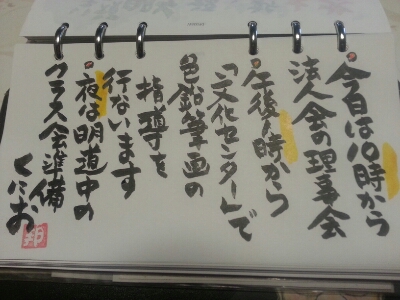 今日は10時から
法人会の理事会
午後1時から
「文化センター」で
色鉛筆画の
指導を
行ないます
夜は明道中の
クラス会準備
くにお
邦